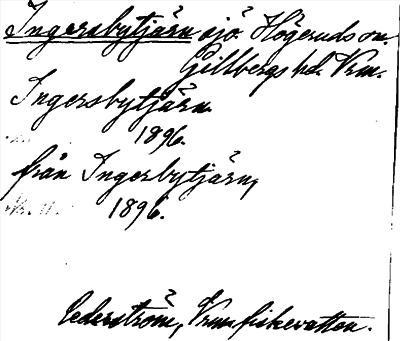 Ingersbytjärn sjö Högeruds sn.
Gillbergs hd. Vrm.
Ingersbytjärn.
1896.
från Ingersbytjärn,
1896.
Cederström, Vrm fiskevatten.